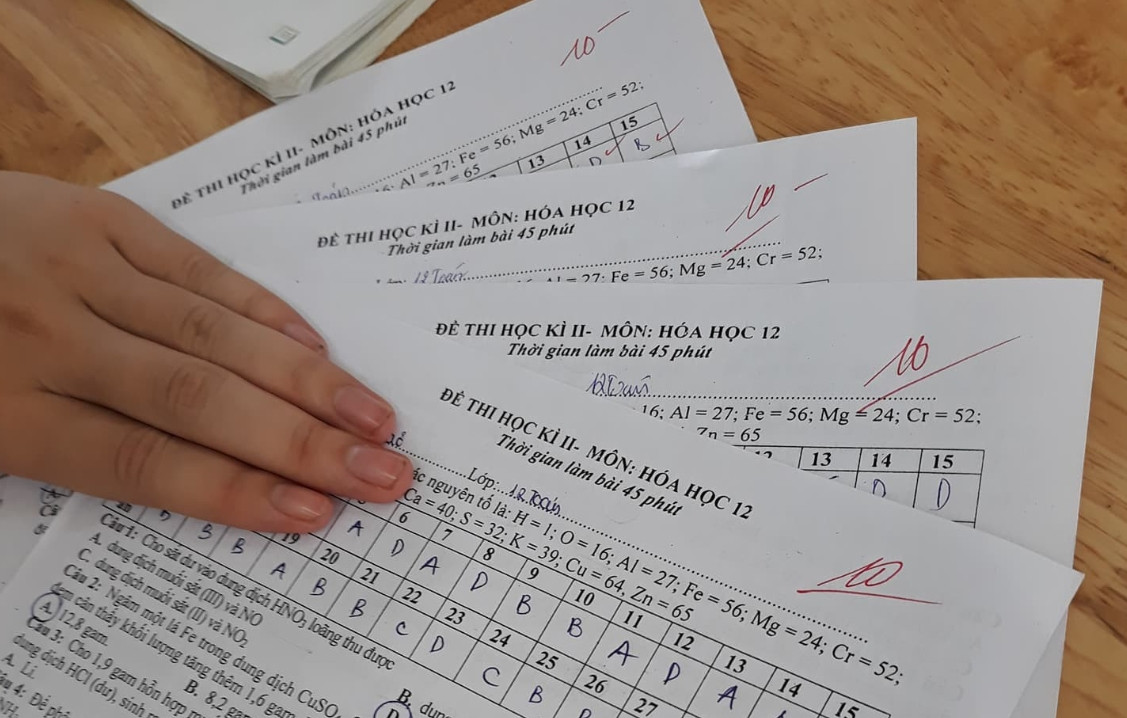 10
ĐỀ THI HỌC KÌ II- MÔN: HÓA HỌC 12
Thời gian làm bài 45 phút
Toán
Al = 27; Fe = 56; Mg = 24; Cr = 52;
Zn = 65
13 14 15
D B
10
ĐỀ THI HỌC KÌ II- MÔN: HÓA HỌC 12
Thời gian làm bài 45 phút
12 Toán
Al = 27; Fe = 56; Mg = 24; Cr = 52;
10
ĐỀ THI HỌC KÌ II- MÔN: HÓA HỌC 12
Thời gian làm bài 45 phút
12 Toán
16; Al = 27; Fe = 56; Mg = 24; Cr = 52;
Zn = 65
13 14 15
D D
10
ĐỀ THI HỌC KÌ II- MÔN: HÓA HỌC 12
Thời gian làm bài 45 phút
Lớp: 12 Toán
các nguyên tố là: H = 1; O = 16; Al = 27; Fe = 56; Mg = 24; Cr = 52;
Ca = 40; S = 32; K = 39; Cu = 64, Zn = 65
6 7 8 9 10 11 12 13 14 15
A D A D B B A D A
19 20 21 22 23 24 25 26 27
B B A B B C D C B
Câu 1: Cho sắt dư vào dung dịch HNO3 loãng thu được
A. dung dịch muối sắt (III) và NO
B. dung
C. dung dịch muối sắt (II) và NO2
D
Câu 2: Ngâm một lá Fe trong dung dịch CuSO4
đem cân thấy khối lượng tăng thêm 1,6 gam
A. 12,8 gam.
B. 8,2 gam
Câu 3: Cho 1,9 gam hỗn hợp
dung dịch HCl (dư), sinh
A. Li.
Câu 4: Để